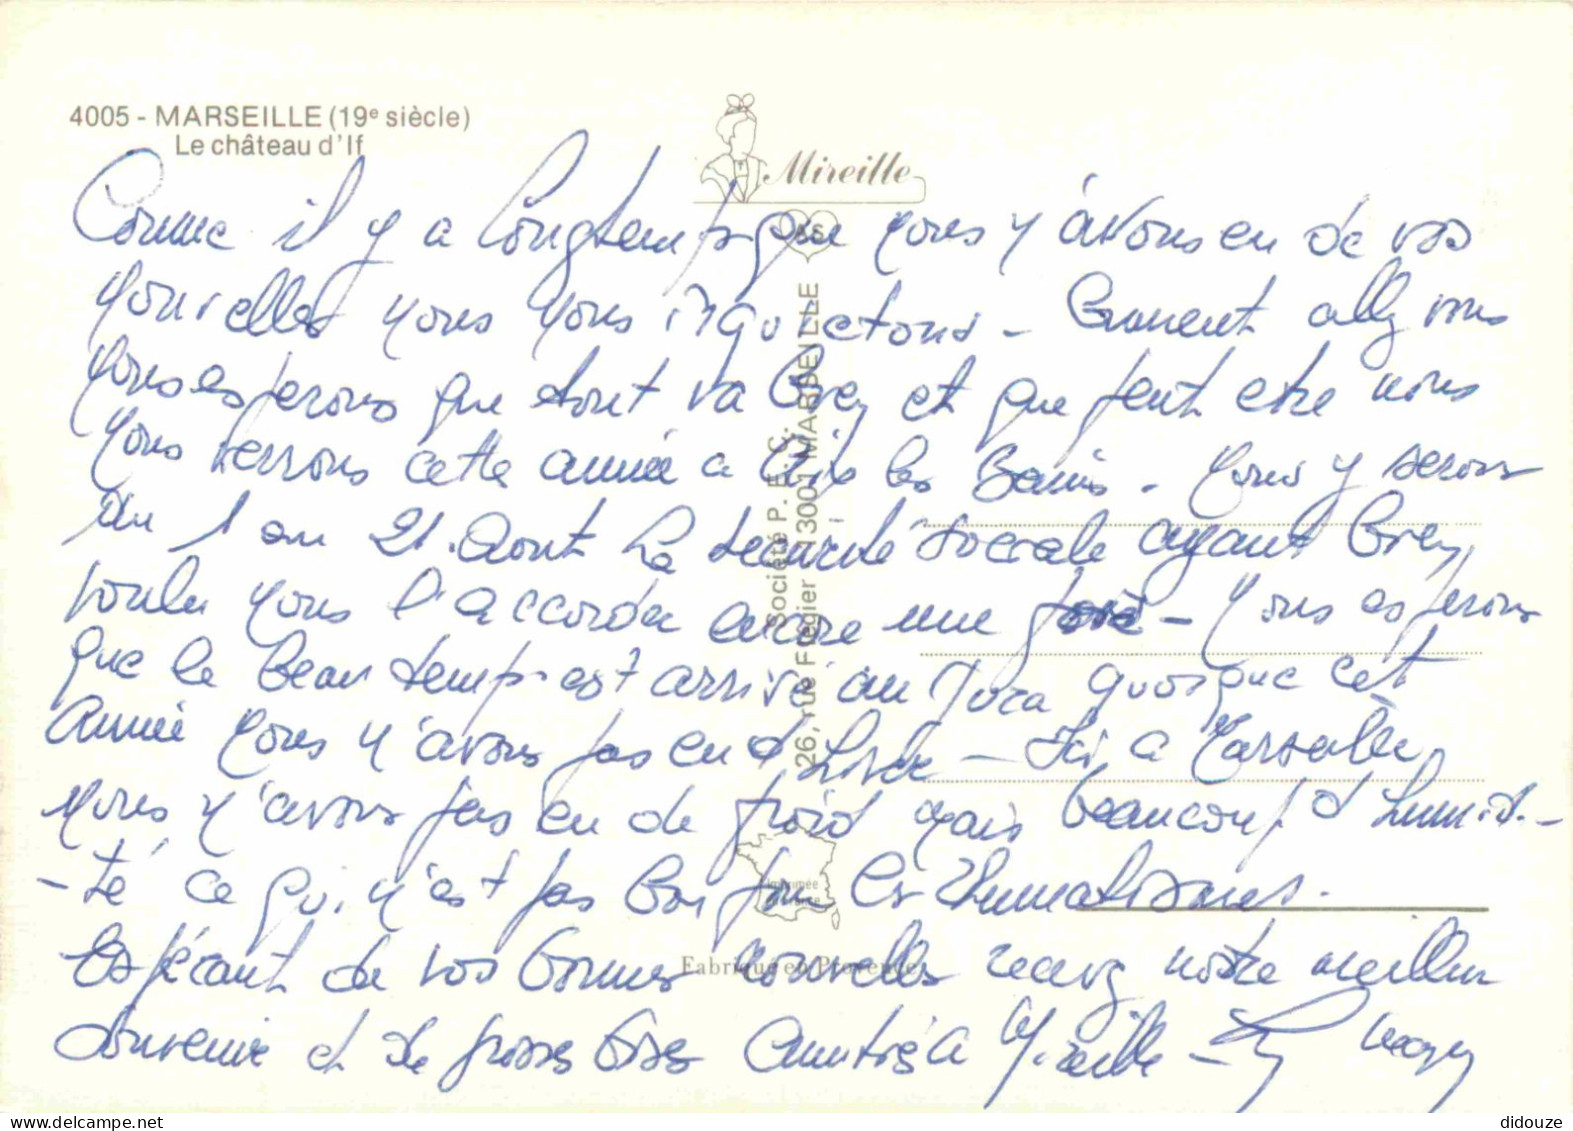 4005 - MARSEILLE (19e siècle)
Le château d'If
Mireille
Comme il y a longtemps que nous n'avons eu de vos
nouvelles nous nous inquietons - Comment allez vous
Nous esperons que tout va bien et que peut etre nous
nous verrons cette année a Aix les Bains. Nous y serons
du 1 au 21. Aout la securité sociale ayant bien
voulu nous l'accorder encore une fois - Nous esperons
que le beau temps est arrivé au Jura quoique cet
Année nous n'avons pas eu d'hiver - Ici a Marseille,
nous n'avons pas eu de froid mais beaucoup d'humidi-
-té ce qui n'est pas bon pour les rhumatismes.
Espérant de vos bonnes nouvelles recevez notre meilleur
souvenir et de grosses bises Amitiés a Mireille -
Société P. E. C.
26, rue Frégier 13001 MARSEILLE
Imprimée
Fabriqué en Provence
didouze